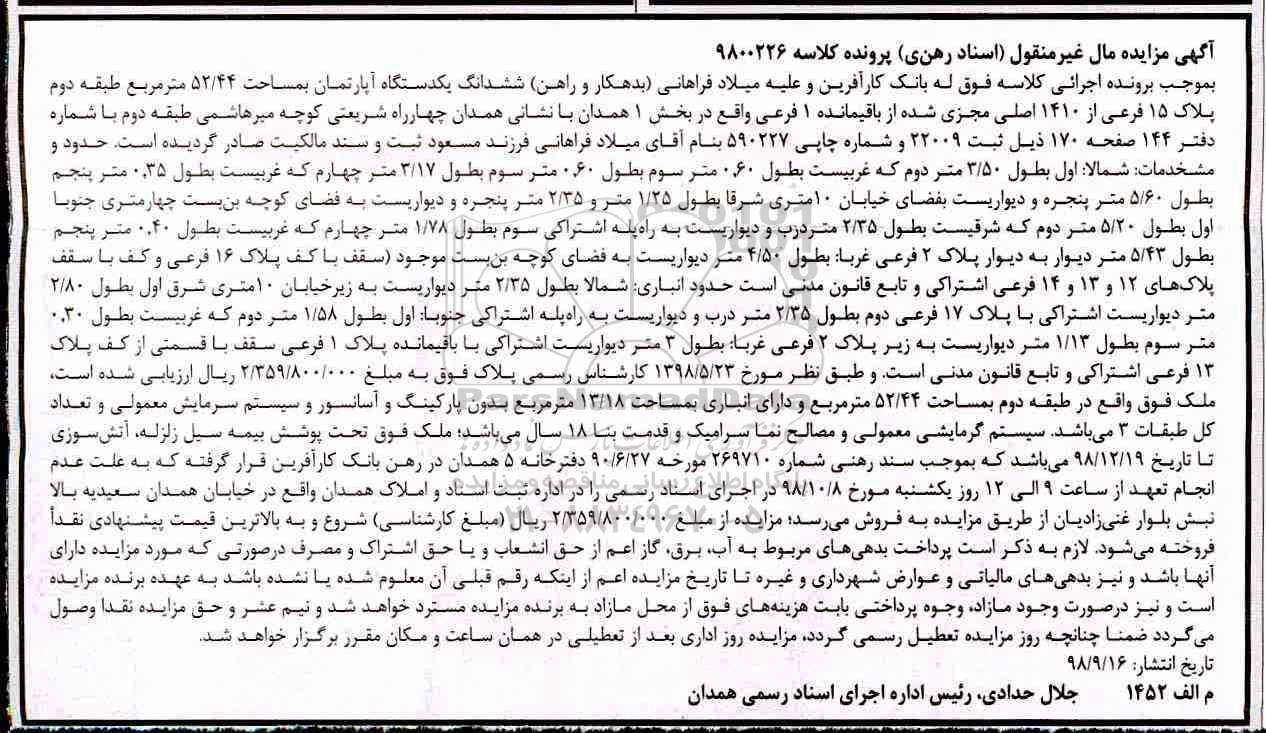 آگهی مزایده مال غیرمنقول (اسناد رهنی) پرونده کلاسه ۹۸۰۰۲۲۶
بموجب پرونده اجرائی کلاسه فوق له بانک کارآفرین و علیه میلاد فراهانی (بدهکار و راهن) ششدانگ یکدستگاه آپارتمان بمساحت ۵۲/۴۴ مترمربع طبقه دوم
پلاک ۱۵ فرعی از ۱۴۱۰ اصلی مجزی شده از باقیمانده ۱ فرعی واقع در بخش ۱ همدان با نشانی همدان چهارراه شریعتی کوچه میرهاشمی طبقه دوم با شماره
دفتر ۱۴۴ صفحه ۱۷۰ ذیل ثبت ۲۲۰۰۹ و شماره چاپی ۵۹۰۲۲۷ بنام آقای میلاد فراهانی فرزند مسعود ثبت و سند مالکیت صادر گردیده است. حدود و
مشخدمات: شمالا: اول بطول ۳/۵۰ متر دوم که غربیست بطول ۰,۶۰ متر سوم بطول ۰,۶۰ متر سوم بطول ۳/۱۷ متر چهارم که غربیست بطول ۰,۳۵ متر پنجم
بطول ۵/۶۰ متر پنجره و دیواریست بفضای خیابان ۱۰متری شرقا بطول ۱/۲۵ متر و ۲/۳۵ متر پنجره و دیواریست به فضای کوچه بن‌بست چهارمتری جنوبا
اول بطول ۵/۲۰ متر دوم که شرقیست بطول ۲/۳۵ متردرب و دیواریست به راه‌پله اشتراکی سوم بطول ۱/۷۸ متر چهارم که غربیست بطول ۰,۴۰ متر پنجم
بطول ۵/۴۳ متر دیوار به دیوار پلاک ۲ فرعی غربا: بطول ۴/۵۰ متر دیواریست به فضای کوچه بن‌بست موجود (سقف با کف پلاک ۱۶ فرعی و کف با سقف
پلاک‌های ۱۲ و ۱۳ و ۱۴ فرعی اشتراکی و تابع قانون مدنی است حدود انباری: شمالا بطول ۲/۳۵ متر دیواریست به زیرخیابان ۱۰متری شرق اول بطول ۲/۸۰
متر دیواریست اشتراکی با پلاک ۱۷ فرعی دوم بطول ۲/۳۵ متر درب و دیواریست به راه‌پله اشتراکی جنوبا: اول بطول ۱/۵۸ متر دوم که غربیست بطول ۰,۳۰
متر سوم بطول ۱/۱۳ متر دیواریست به زیر پلاک ۲ فرعی غربا: بطول ۳ متر دیواریست اشتراکی با باقیمانده پلاک ۱ فرعی سقف با قسمتی از کف پلاک
۱۳ فرعی اشتراکی و تابع قانون مدنی است. و طبق نظر مورخ ۱۳۹۸/۵/۲۳ کارشناس رسمی پلاک فوق به مبلغ ۲/۳۵۹/۸۰۰/۰۰۰ ریال ارزیابی شده است،
ملک فوق واقع در طبقه دوم بمساحت ۵۲/۴۴ مترمربع و دارای انباری بمساحت ۱۳/۱۸ مترمربع بدون پارکینگ و آسانسور و سیستم سرمایش معمولی و تعداد
کل طبقات ۳ می‌باشد. سیستم گرمایشی معمولی و مصالح نما سرامیک و قدمت بنا ۱۸ سال می‌باشد؛ ملک فوق تحت پوشش بیمه سیل زلزله، آتش‌سوزی
تا تاریخ ۹۸/۱۲/۱۹ می‌باشد که بموجب سند رهنی شماره ۲۶۹۷۱۰ مورخه ۹۰/۶/۲۷ دفترخانه ۵ همدان در رهن بانک کارآفرین قرار گرفته که به علت عدم
انجام تعهد از ساعت ۹ الی ۱۲ روز یکشنبه مورخ ۹۸/۱۰/۸ در اجرای اسناد رسمی را در اداره ثبت اسناد و املاک همدان واقع در خیابان همدان سعیدیه بالا
نبش بلوار غنی‌زادیان از طریق مزایده به فروش می‌رسد؛ مزایده از مبلغ ۲/۳۵۹/۸۰۰/۰۰۰ ریال (مبلغ کارشناسی) شروع و به بالاترین قیمت پیشنهادی نقداً
فروخته می‌شود. لازم به ذکر است پرداخت بدهی‌های مربوط به آب، برق، گاز اعم از حق انشعاب و یا حق اشتراک و مصرف درصورتی که مورد مزایده دارای
آنها باشد و نیز بدهی‌های مالیاتی و عوارض شهرداری و غیره تا تاریخ مزایده اعم از اینکه رقم قبلی آن معلوم شده یا نشده باشد به عهده برنده مزایده
است و نیز درصورت وجود مازاد، وجوه پرداختی بابت هزینه‌های فوق از محل مازاد به برنده مزایده مسترد خواهد شد و نیم عشر و حق مزایده نقدا وصول
می‌گردد ضمنا چنانچه روز مزایده تعطیل رسمی گردد، مزایده روز اداری بعد از تعطیلی در همان ساعت و مکان مقرر برگزار خواهد شد.
تاریخ انتشار: ۹۸/۹/۱۶
م الف ۱۴۵۲ جلال حدادی، رئیس اداره اجرای اسناد رسمی همدان